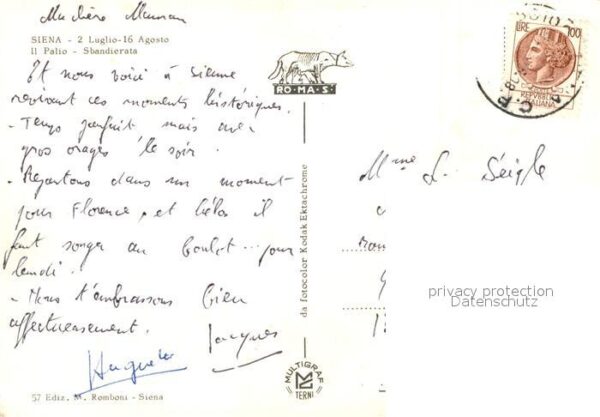 Ma chère Maman
SIENA - 2 Luglio-16 Agosto
Il Palio - Sbandierata
Et nous voici à Sienne
revivant ces moments historiques.
- Temps parfait mais avec
gros orages le soir.
- Repartons dans un moment
pour Florence, et hélas il
faut songer au boulot... pour
lundi.
- Nous t'embrassons bien
affectueusement.
Jacques
57 Ediz. M. Romboni - Siena
RO-MA-S
da fotocolor Kodak Ektachrome
MULTIGRAF
TERNI
LIRE 100
REPVBBLICA
ITALIANA
Mme L. Séigle
privacy protection
Datenschutz